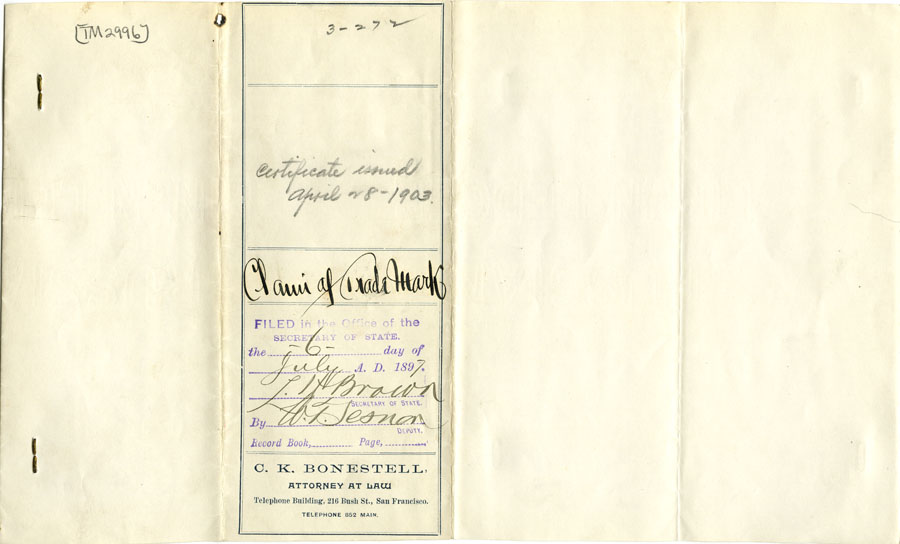 [TM2996]
3-272
Certificate issued
April 28-1903.
Claim of Trade Mark
FILED in the Office of the
SECRETARY OF STATE.
the -6- day of
July A. D. 1897.
L. H. Brown
SECRETARY OF STATE.
By W. T. Sesnon
DEPUTY.
Record Book, Page,
C. K. BONESTELL,
ATTORNEY AT LAW
Telephone Building, 216 Bush St., San Francisco.
TELEPHONE 852 MAIN.